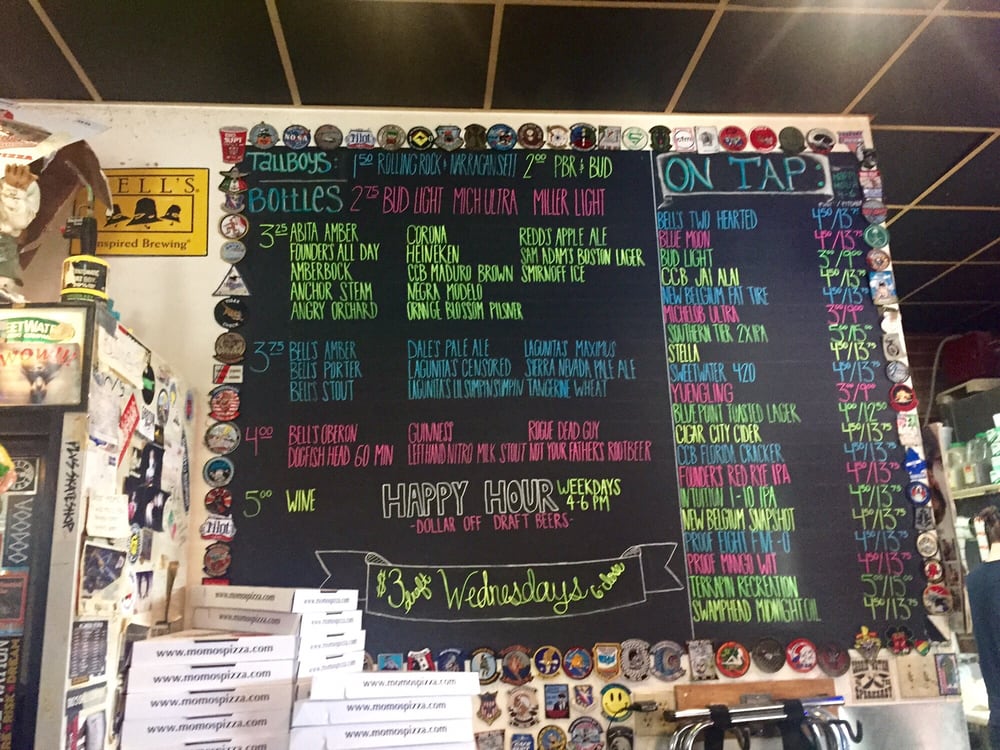 TALLBOYS: 1 50 ROLLING ROCK & NARRAGANSETT 2 00 PBR & BUD
BOTTLES 2 75 BUD LIGHT MICH ULTRA MILLER LIGHT
3 25 ABITA AMBER CORONA REDD'S APPLE ALE
FOUNDER'S ALL DAY HEINEKEN SAM ADAM'S BOSTON LAGER
AMBERBOCK CCB MADURO BROWN SMIRNOFF ICE
ANCHOR STEAM NEGRA MODELO
ANGRY ORCHARD ORANGE BLOSSOM PILSNER
3 75 BELL'S AMBER DALE'S PALE ALE LAGUNITA'S MAXIMUS
BELL'S PORTER LAGUNITA'S CENSORED SIERRA NEVADA PALE ALE
BELL'S STOUT LAGUNITA'S LIL SUMPIN SUMPIN TANGERINE WHEAT
4 00 BELL'S OBERON GUINNESS ROGUE DEAD GUY
DOGFISH HEAD 60 MIN LEFT HAND NITRO MILK STOUT NOT YOUR FATHER'S ROOTBEER
5 00 WINE
HAPPY HOUR WEEKDAYS
4-6 PM
-DOLLAR OFF DRAFT BEERS-
$3 draft Wednesdays 6-close
ON TAP:
BELL'S TWO HEARTED 4 50/13 75
BLUE MOON 4 50/13 75
BUD LIGHT 3 00/9 00
CCB JAI ALAI 4 50/13 75
NEW BELGIUM FAT TIRE 4 50/13 75
MICHELOB ULTRA 3 00/9 00
SOUTHERN TIER 2XIPA 5 00/15 00
STELLA 4 50/13 75
SWEETWATER 420 4 50/13 75
YUENGLING 3 00/9 00
BLUEPOINT TOASTED LAGER 4 00/12 50
CIGAR CITY CIDER 4 50/13 75
CCB FLORIDA CRACKER 4 50/13 75
FOUNDER'S RED RYE IPA 4 50/13 75
INTUITION I-10 IPA 4 50/13 75
NEW BELGIUM SNAPSHOT 4 50/13 75
PROOF EIGHT FIVE-O 4 50/13 75
PROOF MANGO WIT 4 50/13 75
TERRAPIN RECREATION 5 00/15 00
SWAMPHEAD MIDNIGHT OIL 4 50/13 75
ELL'S
nspired Brewing
EETWAT
www.momospizza.com
www.momospizza.com
www.momospizza.com
www.momospizza.com
www.momospizza.com
www.momospizza.com
www.momospizza.com
www.momospizza.com